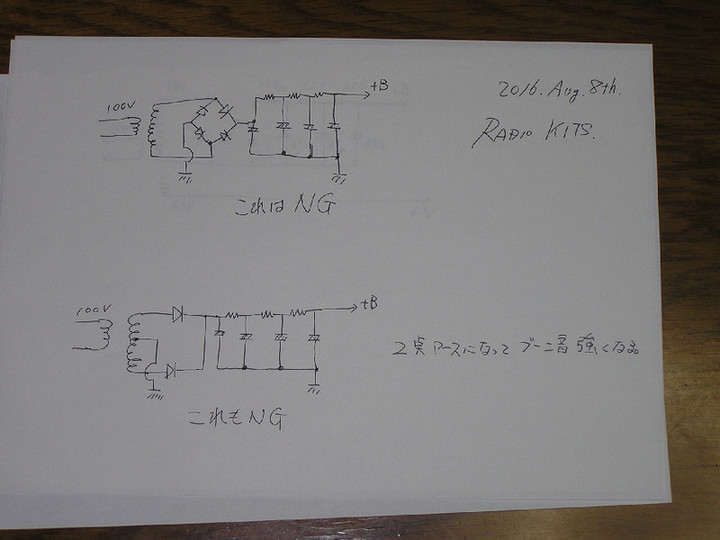 100V
+B
2016. Aug. 8th.
RADIO KITS.
これは NG
100V
+B
2点アースになって ブーン音強くなる。
これも NG